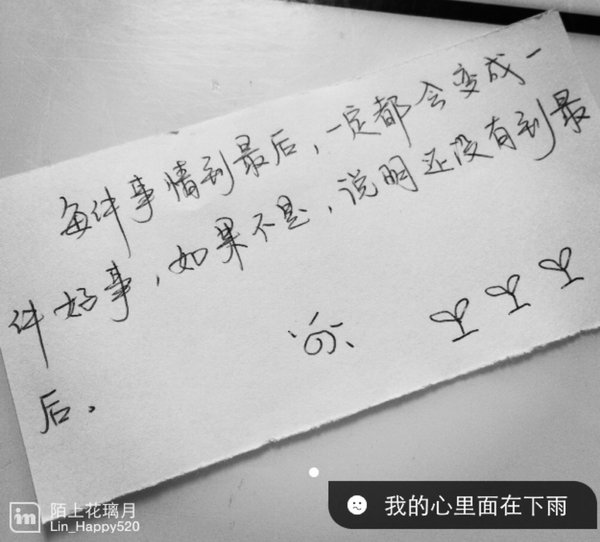 每件事情到最后,一定都会变成一
件好事,如果不是,说明还没有到最
后。
我的心里面在下雨
in
陌上花璃月
Lin_Happy520